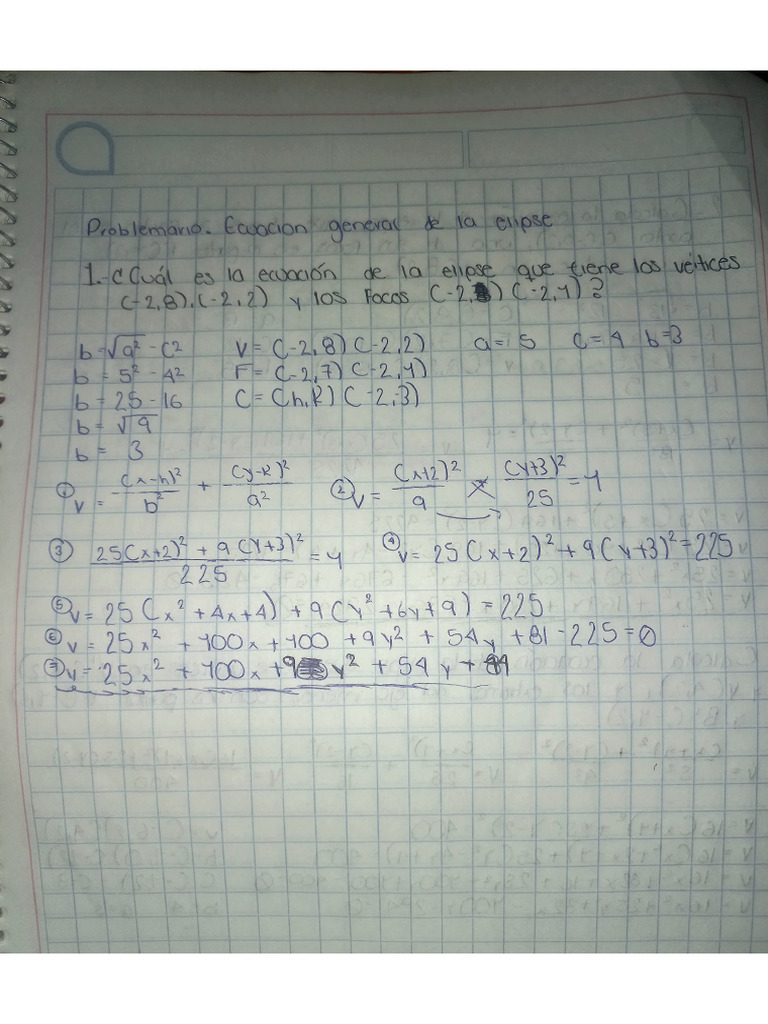 Problemario. Ecuacion general de la elipse
1.- ¿Cuál es la ecuación de la elipse que tiene los vértices
(-2,8).(-2,2) y los focos (-2, ) (-2,1)?
b=√a²-c² V= (-2,8)(-2,2) a=5 c=4 b=3
b= 5²-4² F= (-2,7)(-2,1)
b= 25-16 C= (h,k)(-2,-3)
b= √9
b= 3
① v= (x-h)²/b² + (y-k)²/a² ② v= (x+2)²/9 × (y+3)²/25 =1
③ 25(x+2)²+9(y+3)²/225 =1 ④ v= 25(x+2)²+9(y+3)²=225
⑤ v= 25(x²+4x+4)+9(y²+6y+9)=225
⑥ v= 25x²+100x+100+9y²+54y+81-225=0
⑦ v= 25x²+100x+9y²+54y+